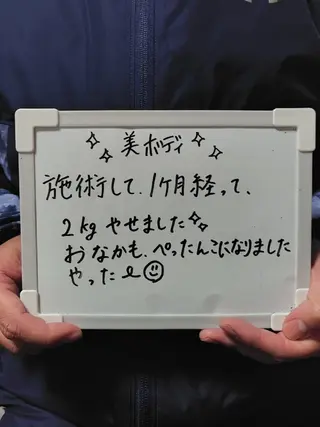 美ボディ
施術して、1ヶ月経って、
2kgやせました
おなかも、ぺったんこになりました
やったぁ